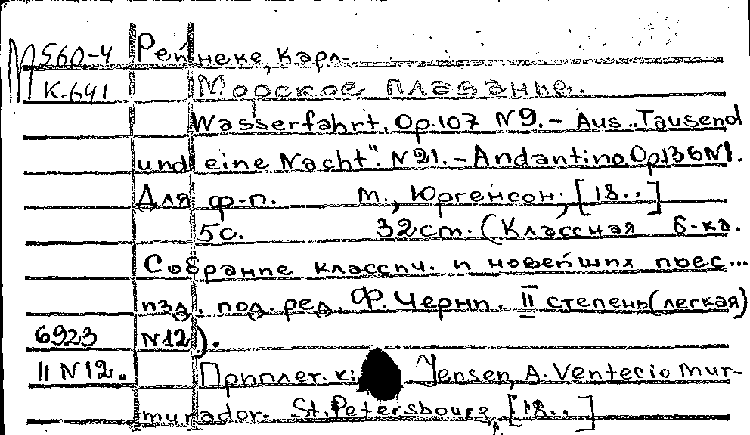 М 560-4 Рейнеке, Карл.
К-641 Морское плаванье.
Wasserfahrt. Op.107 N9. - Aus „Tausend
und eine Nacht". N21. - Andantino Op136N1.
Для ф-п. М., Юргенсон, [18..]
5с. 32cm. (Классная б-ка.
Собрание классич. и новейших пьес...
изд. под. ред. Ф. Черни. II степень (легкая)
6923 N12).
II N12. Приплет. к: Jensen, A. Ventecio mur-
murador. St. Petersbourg, [18..]